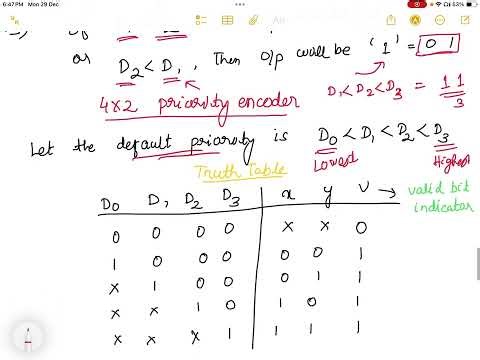 6:47 PM Mon 29 Dec
53%
or D2 < D1, Then O/p will be '1' = 01
D1 < D2 < D3 = 11
3
4x2 priority encoder
Let the default priority is D0 < D1 < D2 < D3
Lowest Highest
Truth Table
D0 D1 D2 D3 x y V → valid bit
indicator
0 0 0 0 x x 0
1 0 0 0 0 0 1
x 1 0 0 0 1 1
x x 1 0 1 0 1
x x x 1 1 1 1